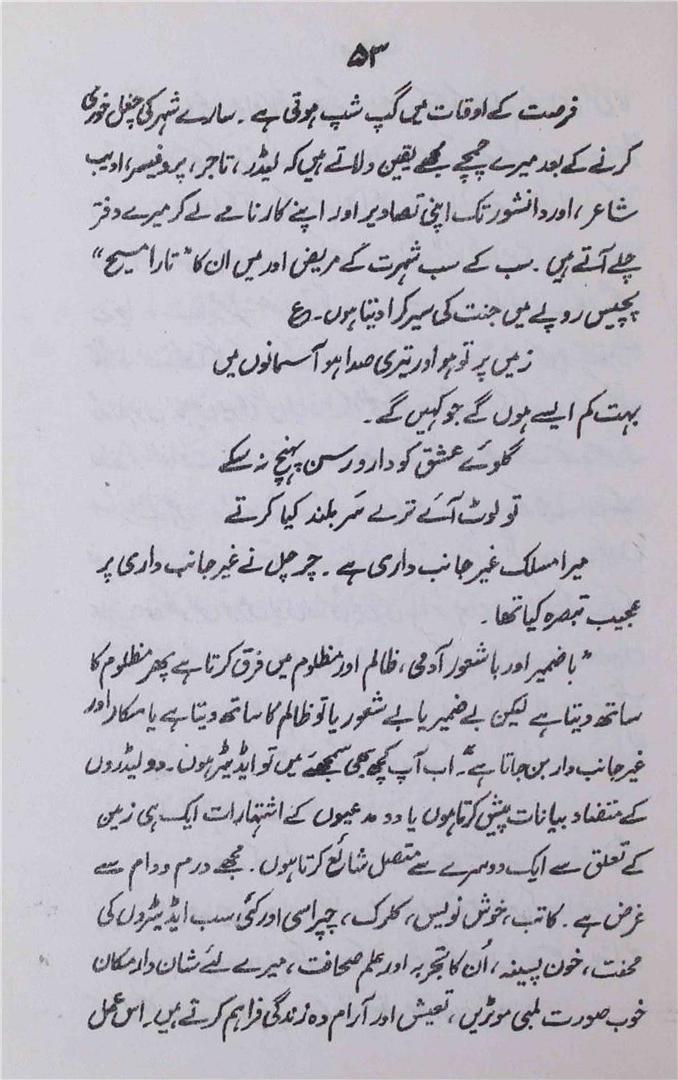 ۵۳
فرصت کے اوقات میں گپ شپ ہوتی ہے۔ سارے شہر کی چغل خوری
کرنے کے بعد میرے چمچے مجھے یقین دلاتے ہیں کہ لیڈر، تاجر، پروفیسر، ادیب
شاعر، اور دانشور تک اپنی تصاویر اور اپنے کارنامے لے کر میرے دفتر
چلے آتے ہیں۔ سب کے سب شہرت کے مریض اور میں ان کا "تارا مسیح"
پچیس روپے میں جنت کی سیر کرا دیتا ہوں۔ ع
زمیں پر تو ہو اور تیری صدا ہو آسمانوں میں
بہت کم ایسے ہوں گے جو کہیں گے۔
گلوئے عشق کو دار و رسن پہنچ نہ سکے
تو لوٹ آئے ترے سَر بلند کیا کرتے
میرا مسلک غیر جانب داری ہے۔ چرچل نے غیر جانب داری پر
عجیب تبصرہ کیا تھا۔
"با ضمیر اور با شعور آدمی، ظالم اور مظلوم میں فرق کرتا ہے پھر مظلوم کا
ساتھ دیتا ہے لیکن بے ضمیر یا بے شعور یا تو ظالم کا ساتھ دیتا ہے یا مکار اور
غیر جانب دار بن جاتا ہے"۔ اب آپ کچھ بھی سمجھئے میں تو ایڈیٹر ہوں۔ دو لیڈروں
کے متضاد بیانات پیش کرتا ہوں یا دو مدعیوں کے اشتہارات ایک ہی زمین
کے تعلق سے ایک دوسرے سے متصل شائع کرتا ہوں۔ مجھے درم و دام سے
غرض ہے۔ کاتب، خوش نویس، کلرک، چپراسی اور کئی سب ایڈیٹروں کی
محنت، خون پسینہ، اُن کا تجربہ اور علم صحافت، میرے لئے شان دار مکان
خوب صورت لمبی موٹریں، تعیش اور آرام دہ زندگی فراہم کرتے ہیں۔ اس عمل